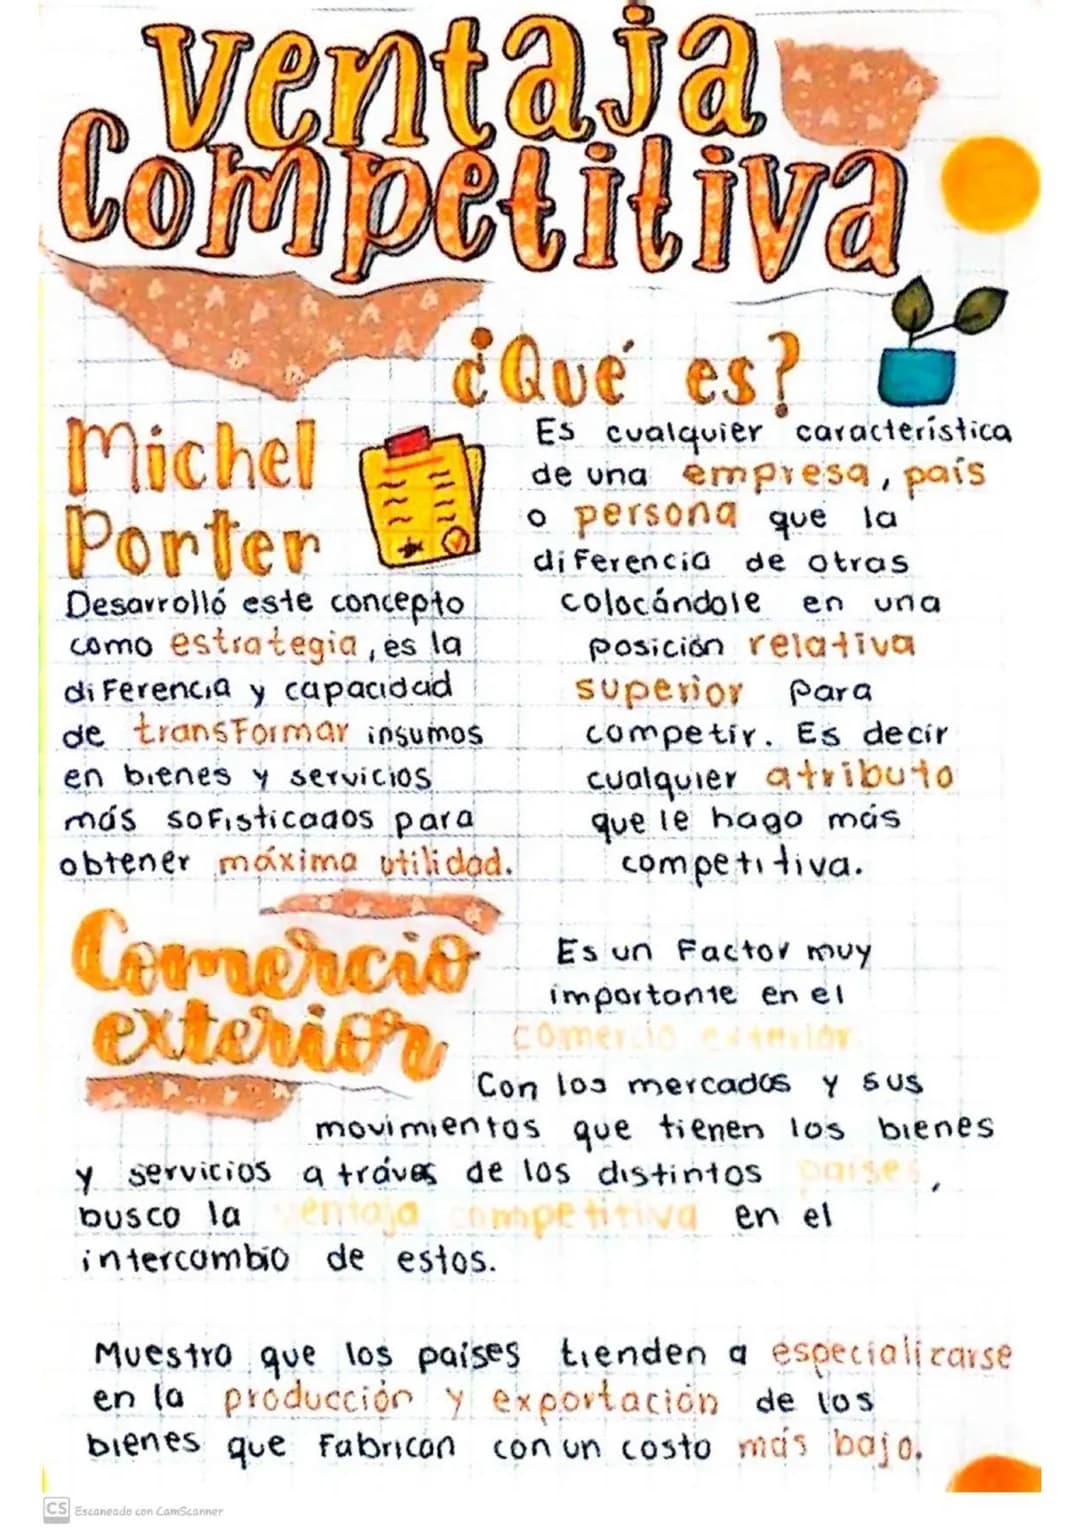 Ventaja
Competitiva
¿Qué es?
Es cualquier característica
de una empresa, país
o persona que la
diferencia de otras
colocándole en una
posición relativa
superior para
competir. Es decir
cualquier atributo
que le hago más
competitiva.
Michel
Porter
Desarrolló este concepto
como estrategia, es la
diferencia y capacidad
de transformar insumos
en bienes y servicios
más sofisticados para
obtener máxima utilidad.
Comercio
exterior
Es un Factor muy
importante en el
comercio exterior
Con los mercados y sus
movimientos que tienen los bienes
y servicios a tráves de los distintos países,
busco la ventaja competitiva en el
intercambio de estos.
Muestro que los países tienden a especializarse
en la producción y exportación de los
bienes que Fabrican con un costo más bajo.
CS Escaneado con CamScanner